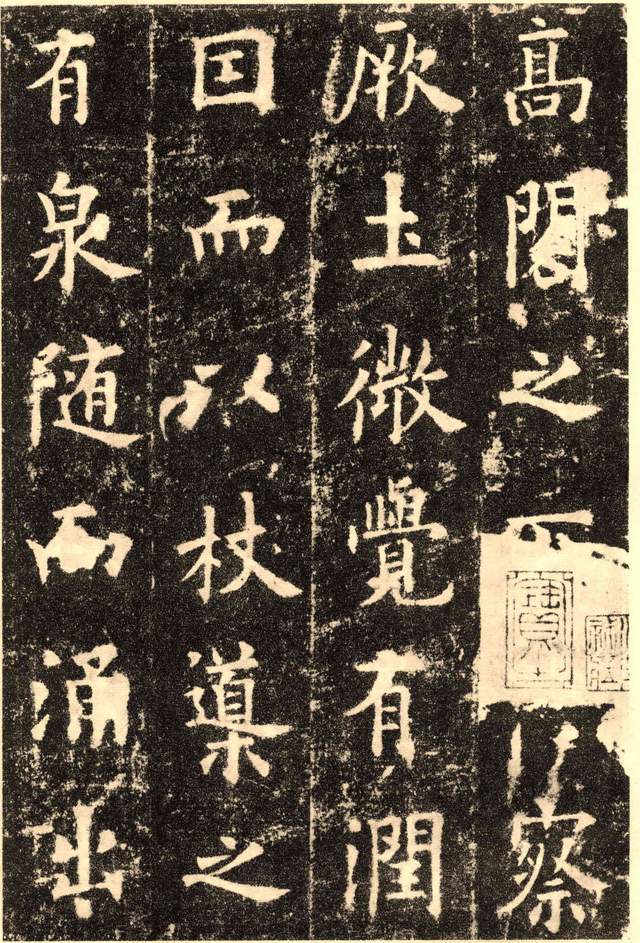 髙閣之察
厥土微覺有潤
因而以杖導之
有泉随而涌出